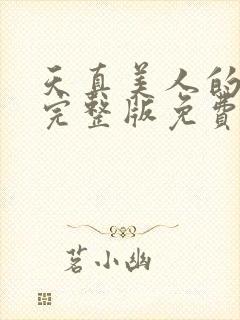 天真美人的
完整版免费
茗小幽